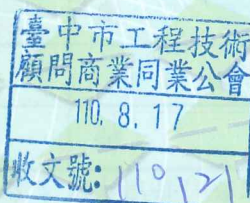 臺中市工程技術
顧問商業同業公會
110. 8. 17
收文號: 110121